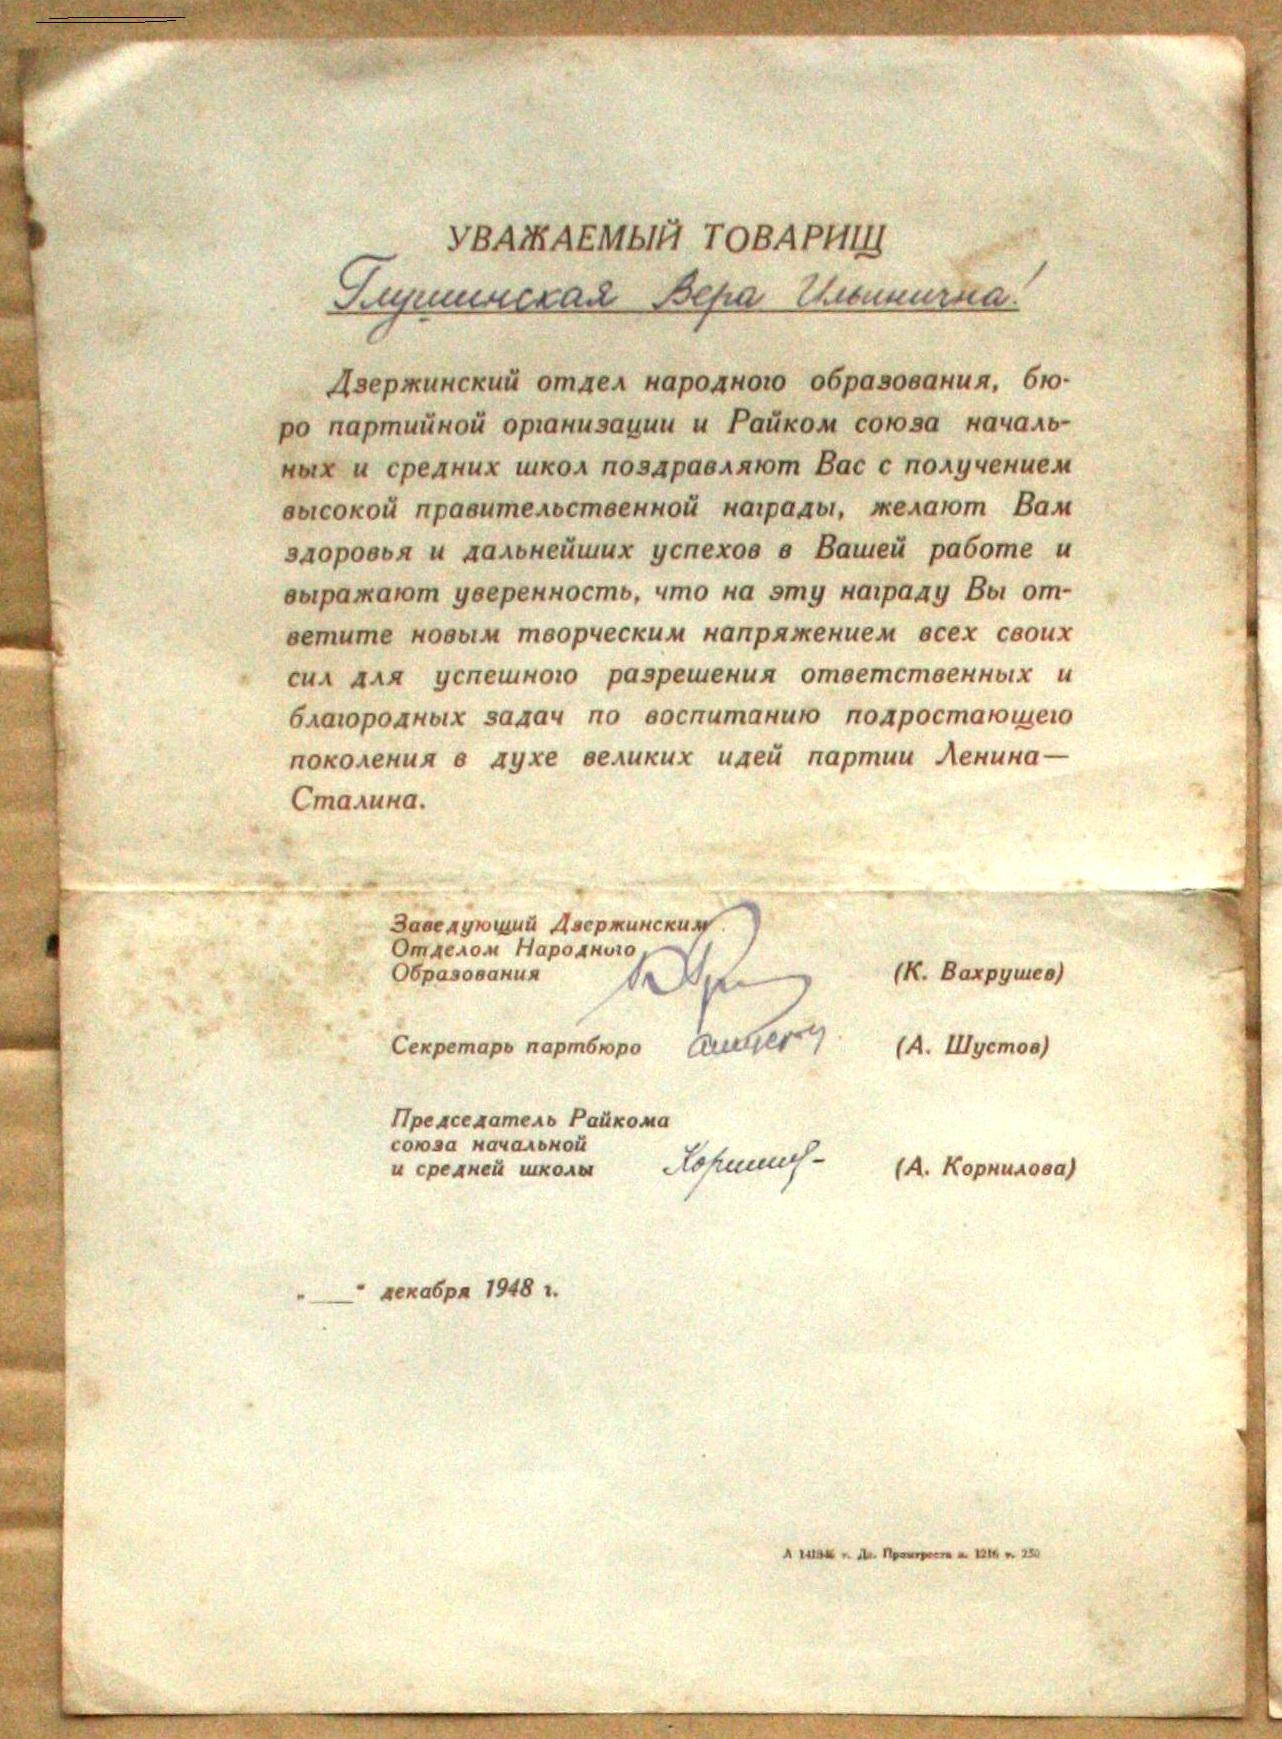 УВАЖАЕМЫЙ ТОВАРИЩ
Глушинская Вера Ильинична!
Дзержинский отдел народного образования, бю-
ро партийной организации и Райком союза началь-
ных и средних школ поздравляют Вас с получением
высокой правительственной награды, желают Вам
здоровья и дальнейших успехов в Вашей работе и
выражают уверенность, что на эту награду Вы от-
ветите новым творческим напряжением всех своих
сил для успешного разрешения ответственных и
благородных задач по воспитанию подростающего
поколения в духе великих идей партии Ленина—
Сталина.
Заведующий Дзержинским
Отделом Народного
Образования (К. Вахрушев)
Секретарь партбюро (А. Шустов)
Председатель Райкома
союза начальной
и средней школы (А. Корнилова)
„___“ декабря 1948 г.
А т. з. 1216 т. 250